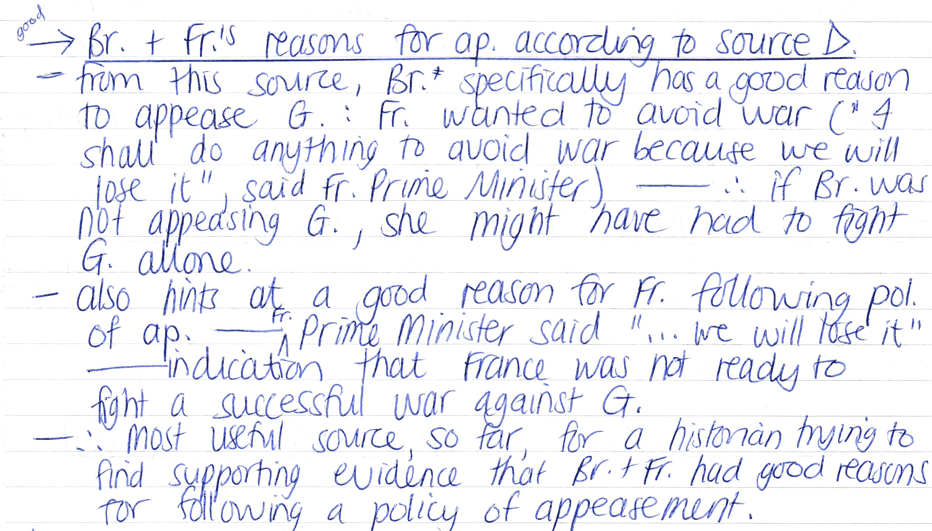 good
→ Br. + Fr.'s reasons for ap. according to source D.
- from this source, Br.* specifically has a good reason
to appease G. : Fr. wanted to avoid war ("I
shall do anything to avoid war because we will
lose it", said Fr. Prime Minister) —— ∴ if Br. was
not appeasing G., she might have had to fight
G. allone.
- also hints at a good reason for Fr. following pol.
of ap. —— Fr. Prime Minister said "... we will lose it"
—— indication that France was not ready to
fight a successful war against G.
- ∴ most useful source, so far, for a historian trying to
find supporting evidence that Br. + Fr. had good reasons
for following a policy of appeasement.